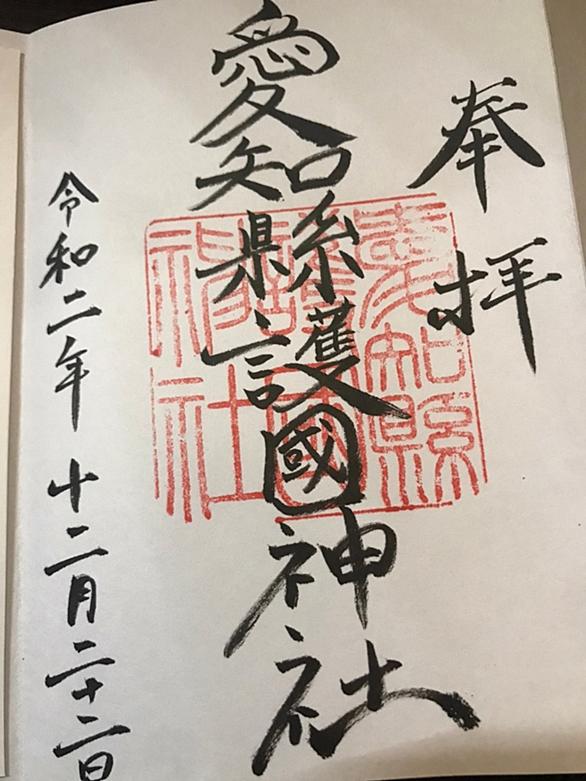 奉拝
愛知縣護國神社
令和二年 十二月二十二日
愛知縣
護國
神社